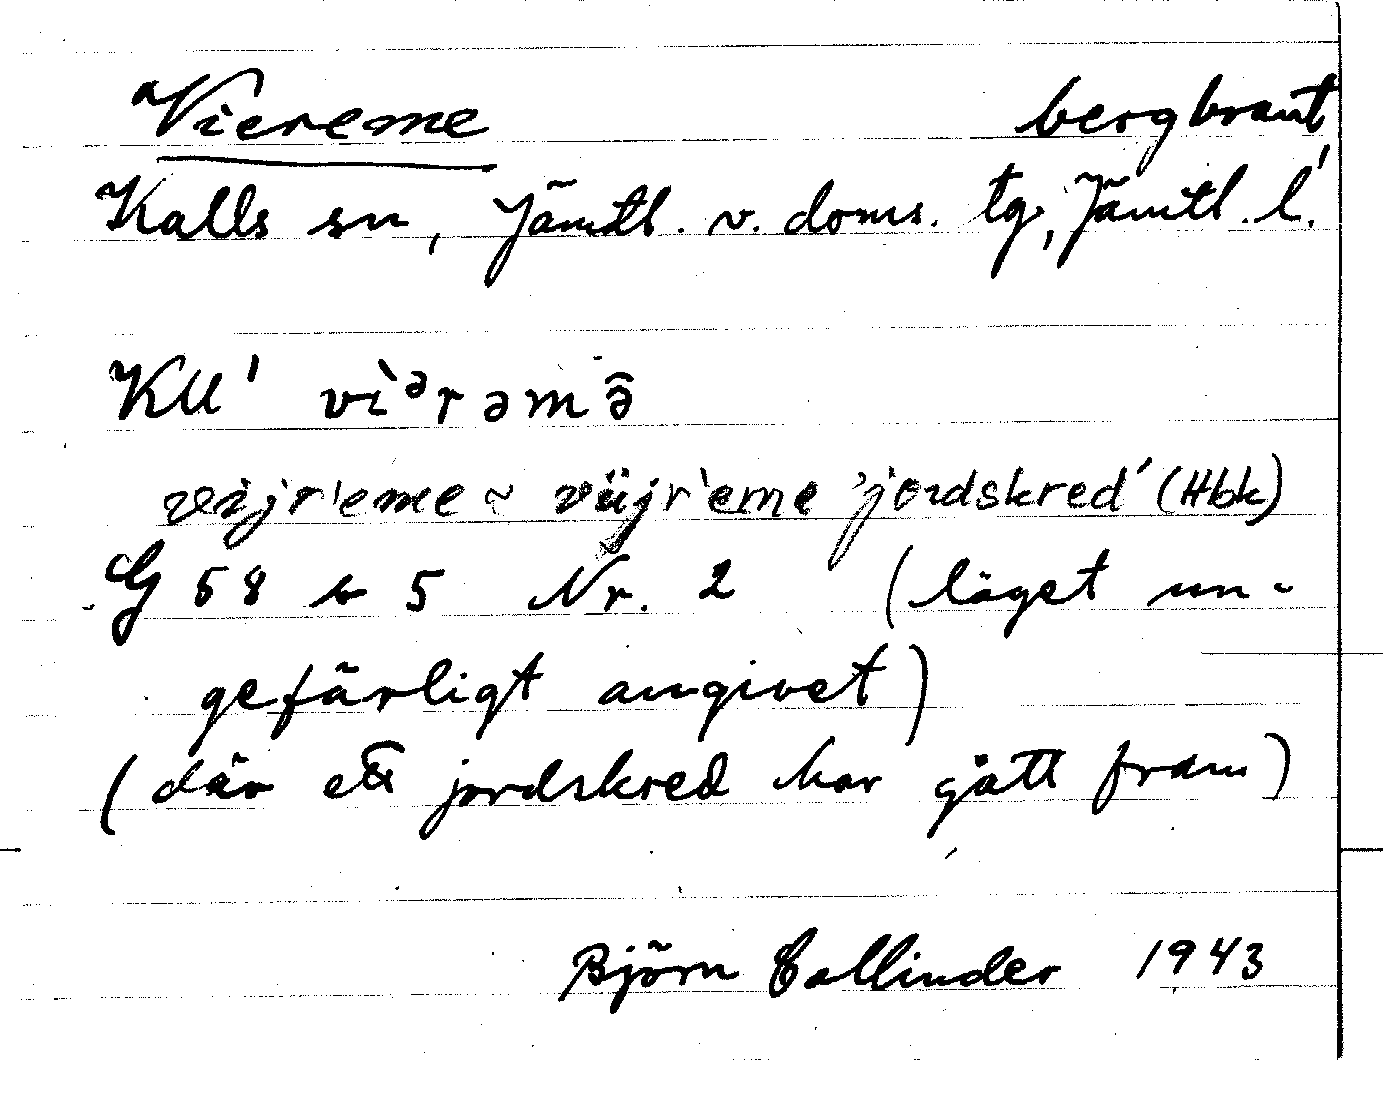 Viereme bergbrant
Kalls sn, Jämtl. v. doms. tg, Jämtl. l.
Kll' vìᵊrəmə̑
vijr'eme ~ vüjr'eme 'jordskred' (Hbk)
G 58 b 5 Nr. 2 (läget un-
gefärligt angivet)
(där ett jordskred har gått fram)
Björn Collinder 1943